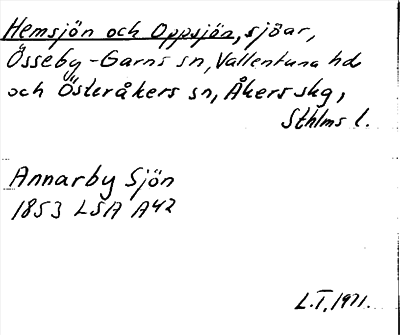 Hemsjön och Oppsjön, sjöar,
Össeby-Garns sn, Vallentuna hd
och Österåkers sn, Åkers skg,
Sthlms l.
Annarby Sjön
1853 LSA A42
L.I. 1971.